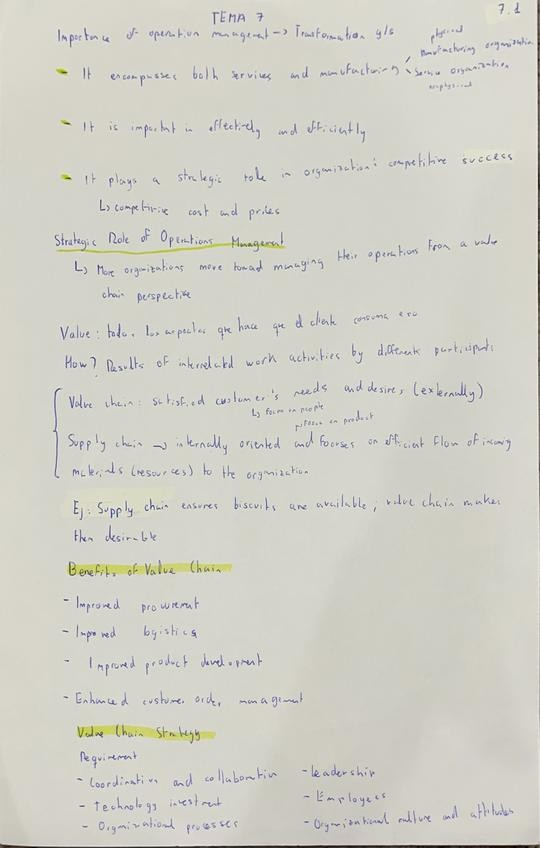 TEMA 7
7.1
Importance of operation management -> Transformation g/s
- It encompasses both services and manufacturing
physical
manufacturing organization
Service organization
nonphysical
- It is important in effectively and efficiently
- It plays a strategic role in organization's competitive success
↳ competitive cost and prices
Strategic Role of Operations Management
↳ More organizations move toward managing their operations from a value
chain perspective
Value: todo, los aspectos que hace que el cliente consuma eso
How? Results of interrelated work activities by different participants
Value chain: satisfied customer's needs and desires (externally)
↳ focus on people
focus on product
Supply chain -> internally oriented and focuses on efficient flow of incoming
materials (resources) to the organization
Ej: Supply chain ensures biscuits are available; value chain makes
then desirable
Benefits of Value Chain
- Improved procurement
- Improved logistics
- Improved product development
- Enhanced customer order management
Value Chain Strategy
Requirement
- Coordination and collaboration
- Technology investment
- Organizational processes
- leadership
- Employees
- Organizational culture and attitudes